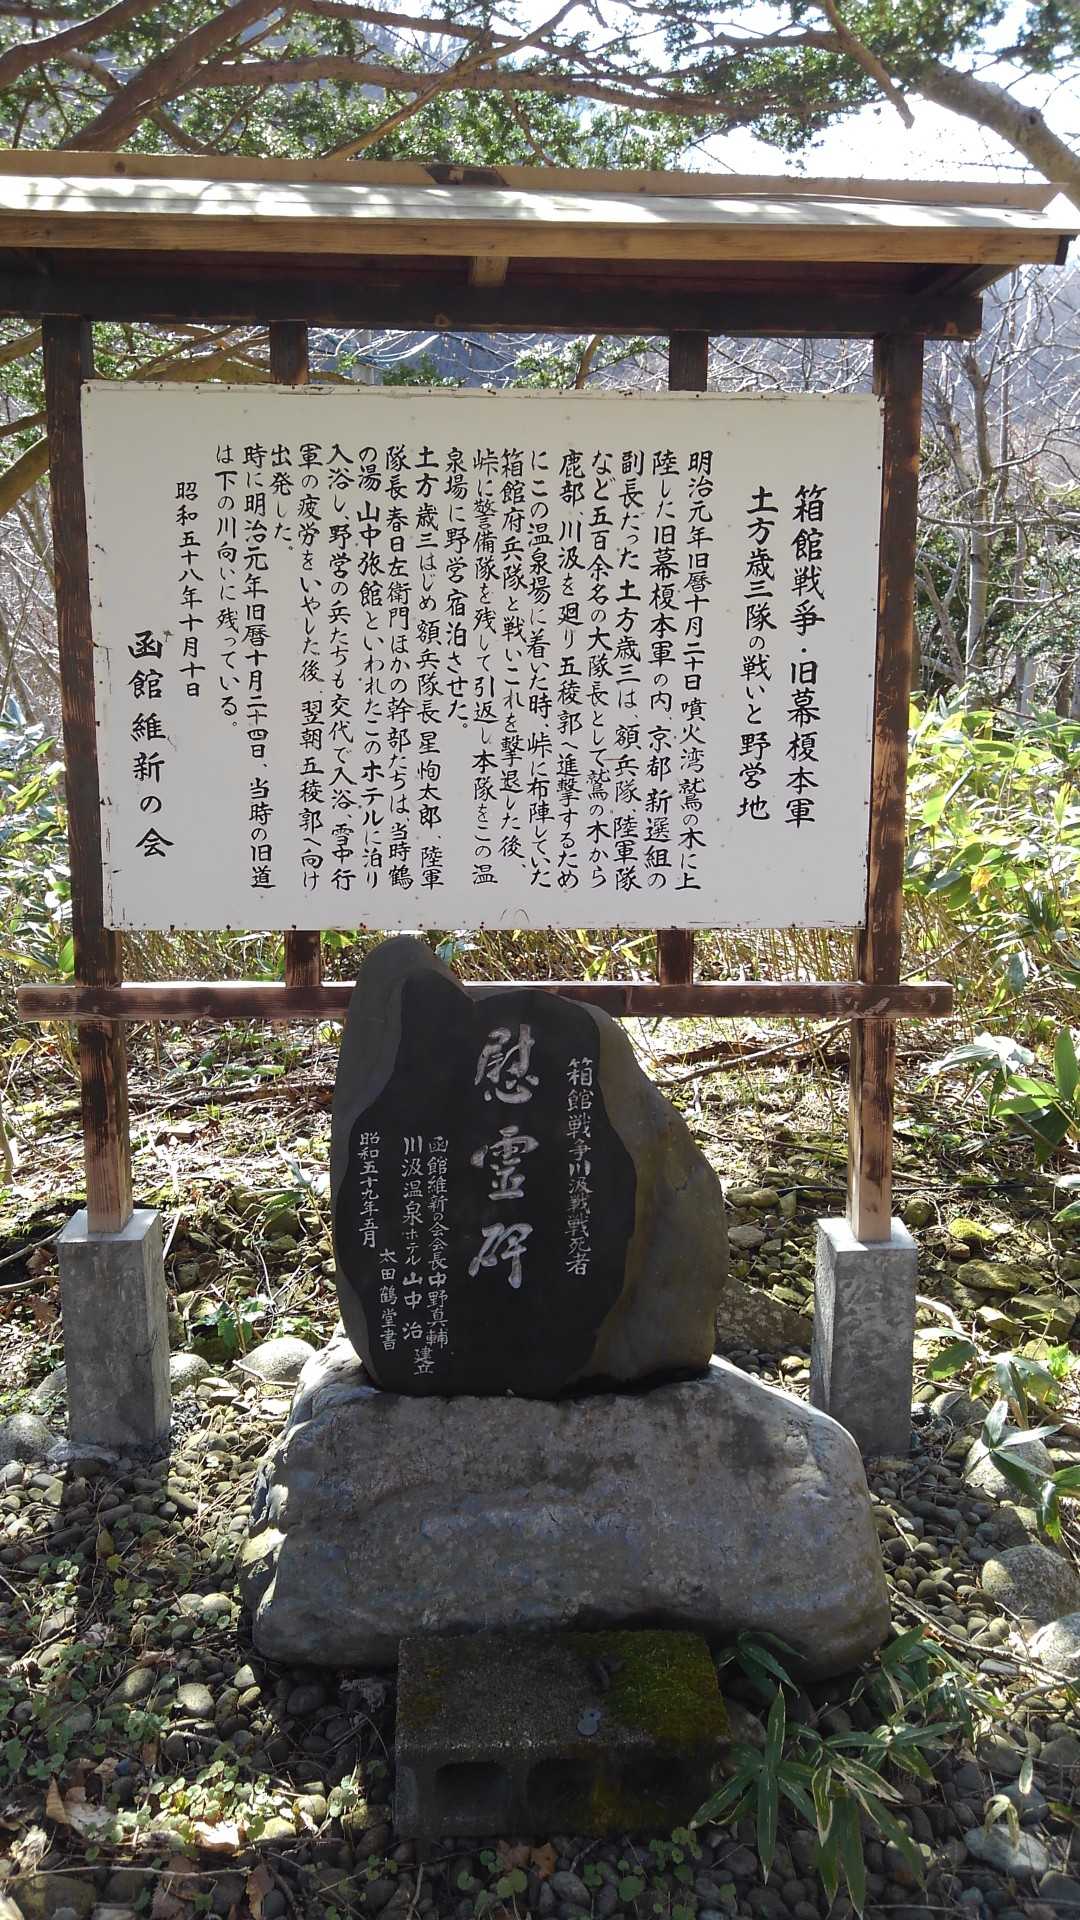 箱館戦争・旧幕榎本軍
土方歳三隊の戦いと野営地
明治元年旧暦十月二十日噴火湾鷲の木に上
陸した旧幕榎本軍の内、京都新選組の
副長だった土方歳三は、額兵隊、陸軍隊
など五百余名の大隊長として鷲の木から
鹿部、川汲を廻り五稜郭へ進撃するため
にこの温泉場に着いた時、峠に布陣していた
箱館府兵隊と戦いこれを撃退した後、
峠に警備隊を残して引返し本隊をこの温
泉場に野営宿泊させた。
土方歳三はじめ額兵隊長星恂太郎、陸軍
隊長春日左衛門ほかの幹部たちは、当時鶴
の湯山中旅館といわれたこのホテルに泊り
入浴し、野営の兵たちも交代で入浴、雪中行
軍の疲労をいやした後、翌朝五稜郭へ向け
出発した。
時に明治元年旧暦十月二十四日、当時の旧道
は下の川向いに残っている。
昭和五十八年十月十日
函館維新の会
箱館戦争川汲戦戦死者
慰霊碑
函館維新の会会長中野真輔
川汲温泉ホテル山中治
建立
太田鶴堂書
昭和五十九年五月